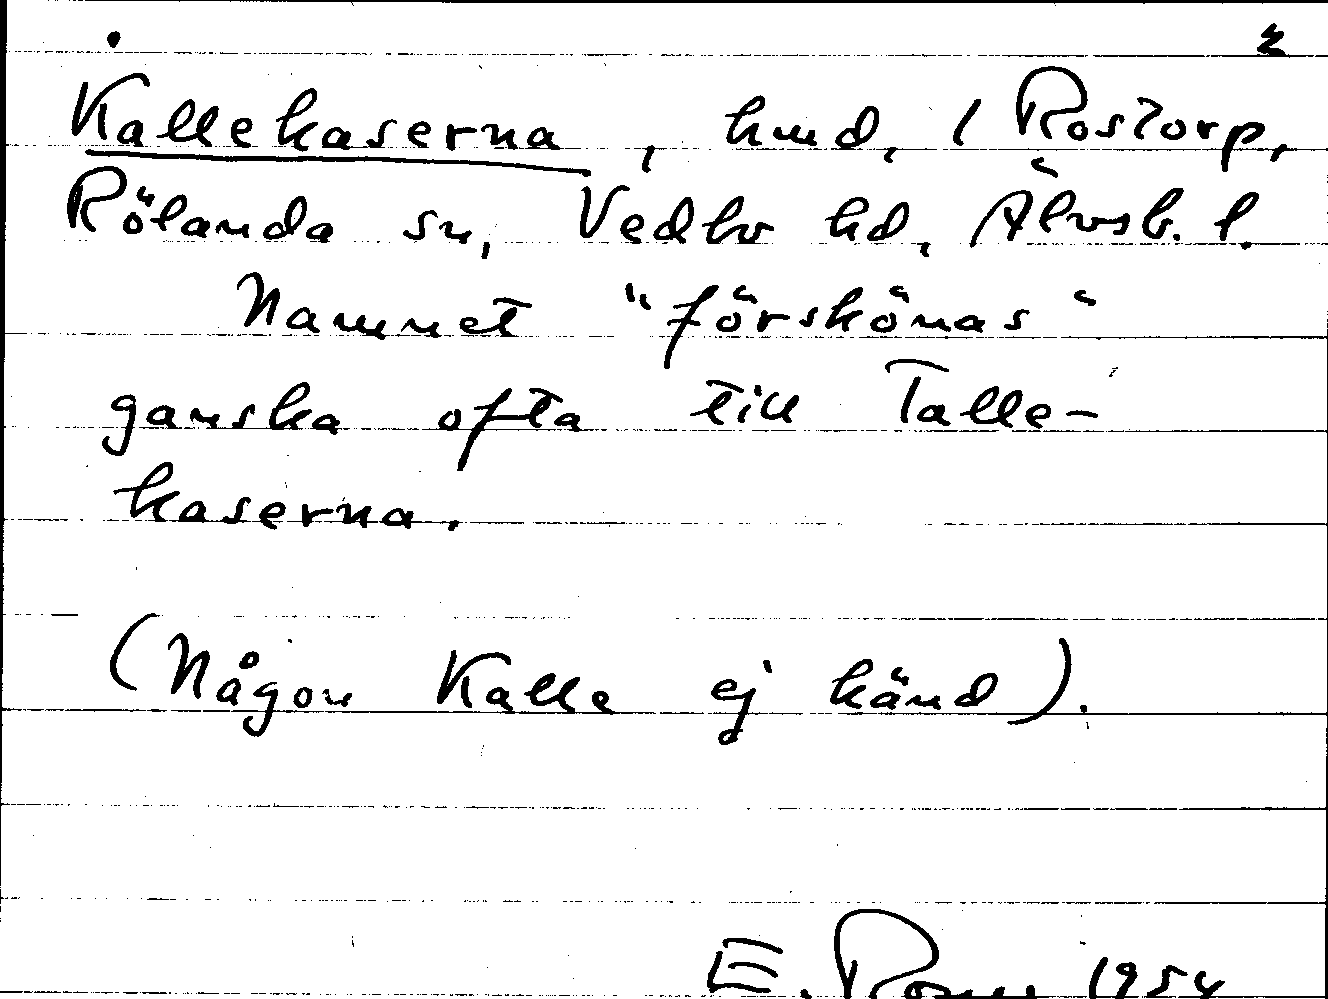 2
Kallekaserna, hmd, 1 Rostorp,
Rölanda sn, Vedbo hd, Älvsb. l.
Namnet "förskönas"
ganska ofta till Talle-
kaserna.
(Någon Kalle ej känd).
E. 1954